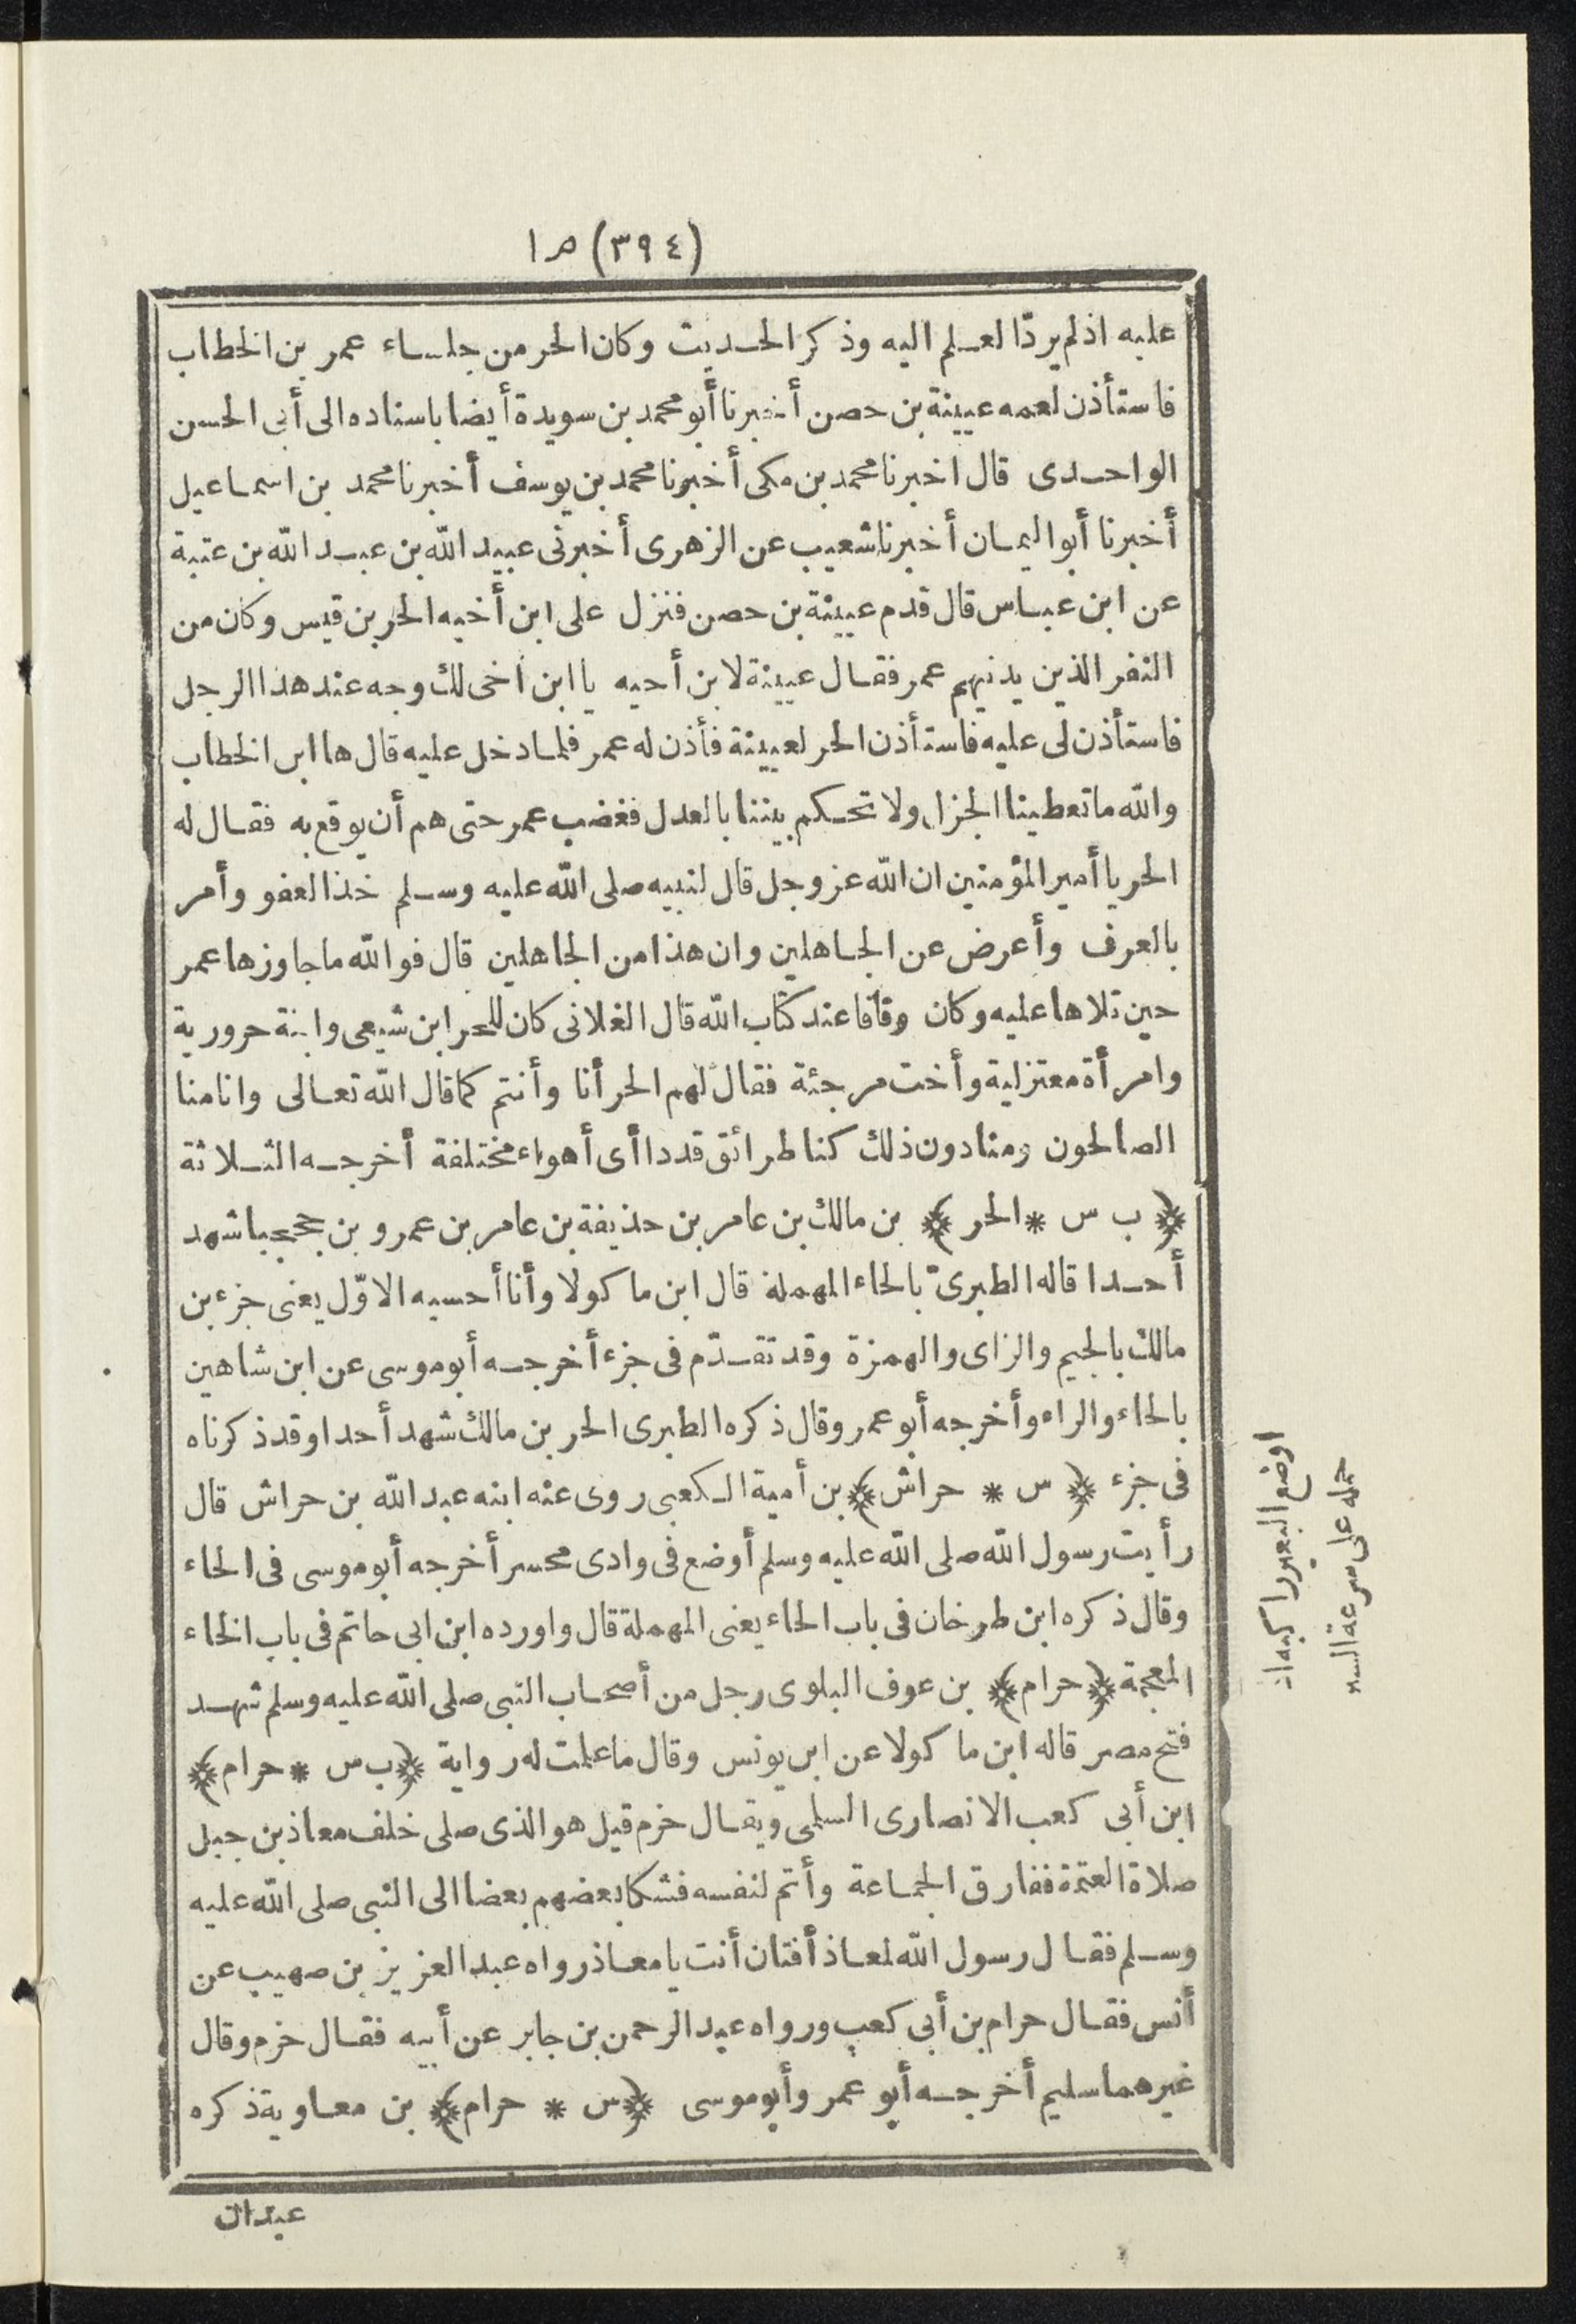 (٣٩٤) ص ١
عليه اذ لم يردّ العلم اليه وذكر الحديث وكان الحر من جلساء عمر بن الخطاب
فاستأذن لعمه عيينة بن حصن أخبرنا أبو محمد بن سويدة أيضا باسناده الى أبى الحسن
الواحدى قال اخبرنا محمد بن مكى أخبرنا محمد بن يوسف أخبرنا محمد بن اسماعيل
أخبرنا أبو اليمان أخبرنا شعيب عن الزهرى أخبرنى عبيد الله بن عبد الله بن عتبة
عن ابن عباس قال قدم عيينة بن حصن فنزل على ابن أخيه الحر بن قيس وكان من
النفر الذين يدنيهم عمر فقال عيينة لابن أخيه يا ابن أخى لك وجه عند هذا الرجل
فاستأذن لى عليه فاستأذن الحر لعيينة فأذن له عمر فلما دخل عليه قال ها ابن الخطاب
والله ما تعطينا الجزل ولا تحكم بيننا بالعدل فغضب عمر حتى هم أن يوقع به فقال له
الحر يا أمير المؤمنين ان الله عز وجل قال لنبيه صلى الله عليه وسلم خذ العفو وأمر
بالعرف وأعرض عن الجاهلين وان هذا من الجاهلين قال فوالله ما جاوزها عمر
حين تلاها عليه وكان وقافا عند كتاب الله قال الغلابى كان للحر ابن شيعى وابنة حرورية
وامرأة معتزلية وأخت مرجئة فقال لهم الحر أنا وأنتم كما قال الله تعالى وانا منا
الصالحون ومنا دون ذلك كنا طرائق قددا أى أهواء مختلفة أخرجه الثلاثة
﴿ ب س * الحر ﴾ بن مالك بن عامر بن حذيفة بن عامر بن عمرو بن جحجبا شهد
أحدا قاله الطبرىّ بالحاء المهملة قال ابن ماكولا وأنا أحسبه الاوّل يعنى جزء بن
مالك بالجيم والزاى والهمزة وقد تقدّم فى جزء أخرجه أبو موسى عن ابن شاهين
بالحاء والراء وأخرجه أبو عمر وقال ذكره الطبرى الحر بن مالك شهد أحدا وقد ذكرناه
فى جزء ﴿ س * حراش ﴾ بن أمية الكعبى روى عنه ابنه عبد الله بن حراش قال
رأيت رسول الله صلى الله عليه وسلم أوضع فى وادى محسر أخرجه أبو موسى فى الحاء
وقال ذكره ابن طرخان فى باب الحاء يعنى المهملة قال واورده ابن ابى حاتم فى باب الخاء
المعجمة ﴿ حرام ﴾ بن عوف البلوى رجل من أصحاب النبى صلى الله عليه وسلم شهد
فتح مصر قاله ابن ماكولا عن ابن يونس وقال ما علمت له رواية ﴿ ب س * حرام ﴾
ابن أبى كعب الانصارى السلمى ويقال حزم قيل هو الذى صلى خلف معاذ بن جبل
صلاة العتمة ففارق الجماعة وأتم لنفسه فشكا بعضهم بعضا الى النبى صلى الله عليه
وسلم فقال رسول الله لمعاذ أفتان أنت يا معاذ رواه عبد العزيز بن صهيب عن
أنس فقال حرام بن أبى كعب ورواه عبد الرحمن بن جابر عن أبيه فقال حزم وقال
غيرهما سليم أخرجه أبو عمر وأبو موسى ﴿ س * حرام ﴾ بن معاوية ذكره
عبدان
اوضع البعير راكبه اذ
حمله على سرعة السير